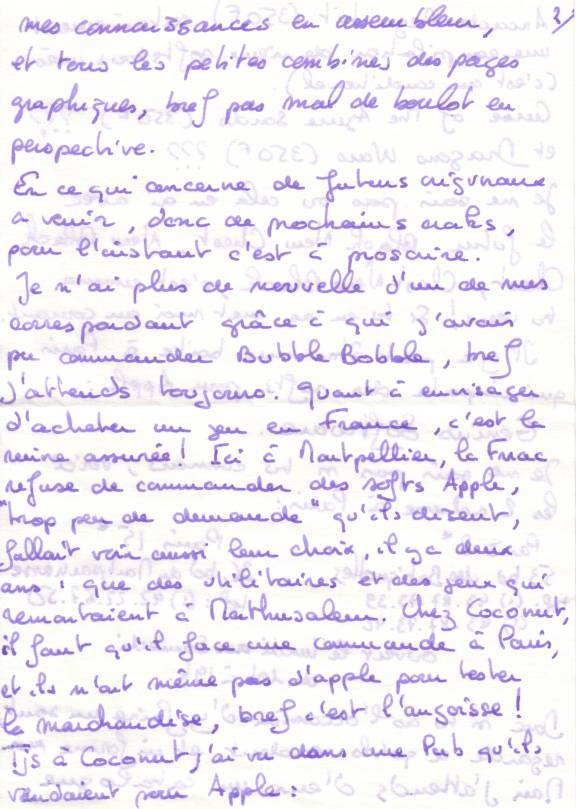 3/
mes connaissances en assembleur,
et tous les petites combines des pages
graphiques, bref pas mal de boulot en
perspective.
En ce qui concerne de futurs originaux
a venir, donc de prochains craks,
pour l'instant c'est à proscrire.
Je n'ai plus de nouvelle d'un de mes
correspondant grâce à qui j'avais
pu commander Bubble Bobble, bref
j'attends toujours. Quant à envisager
d'acheter un jeu en France, c'est la
ruine assurée! Ici à Montpellier, la Fnac
refuse de commander des softs Apple,
"trop peu de demande" qu'ils disent,
fallait voir aussi leur choix, il y a deux
ans : que des utilitaires et des jeux qui
remontaient à Mathusalem. Chez Coconut,
il faut qu'il face une commande à Paris,
et ils n'ont même pas d'apple pour tester
la marchandise, bref c'est l'angoisse!
Tjs à Coconut, j'ai vu dans une Pub qu'ils
vendaient pour Apple :